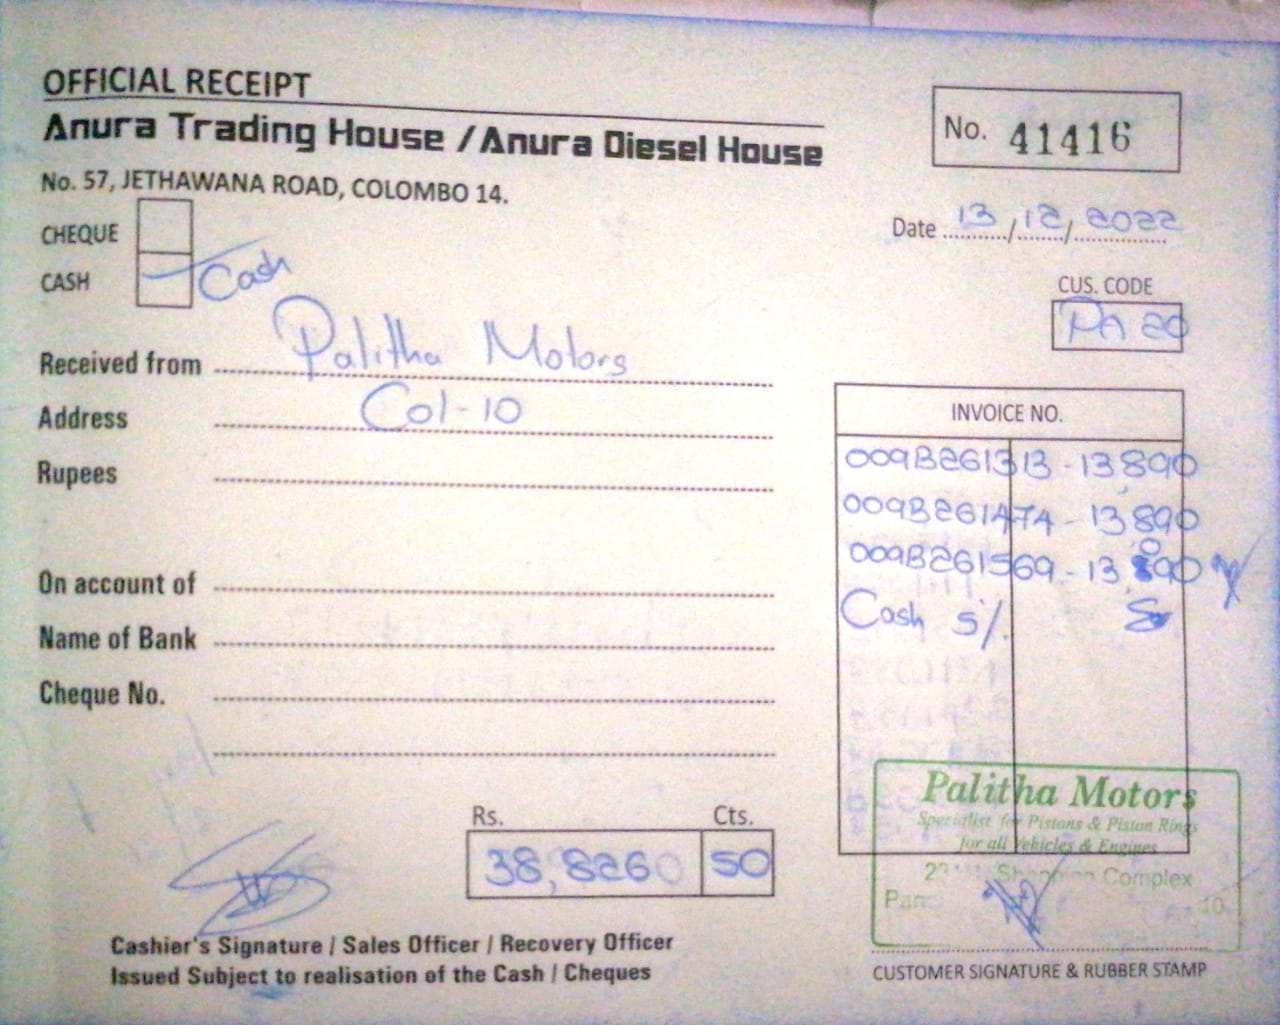 OFFICIAL RECEIPT
Anura Trading House / Anura Diesel House
No. 57, JETHAWANA ROAD, COLOMBO 14.
No. 41416
CHEQUE
CASH Cash
Date 13/12/2022
CUS. CODE
PA 20
Received from Palitha Motors
Address Col-10
Rupees
On account of
Name of Bank
Cheque No.
INVOICE NO.
009B261313 - 13890
009B261474 - 13890
009B261569 - 13
Cash 5%
Rs. Cts.
38,826 50
Palitha Motors
Specialist for Pistons & Piston Rings
for all Vehicles & Engines
Shopping Complex
10
Cashier's Signature / Sales Officer / Recovery Officer
Issued Subject to realisation of the Cash / Cheques
CUSTOMER SIGNATURE & RUBBER STAMP